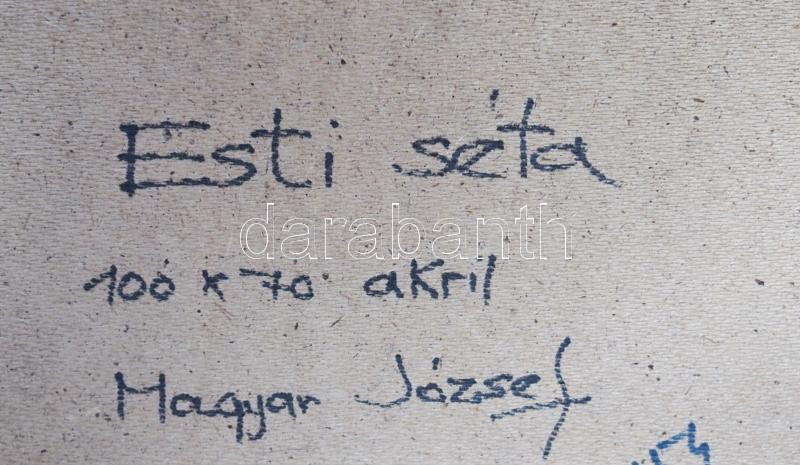 Esti séta
darabanth
100 x 70 akril
Magyar József